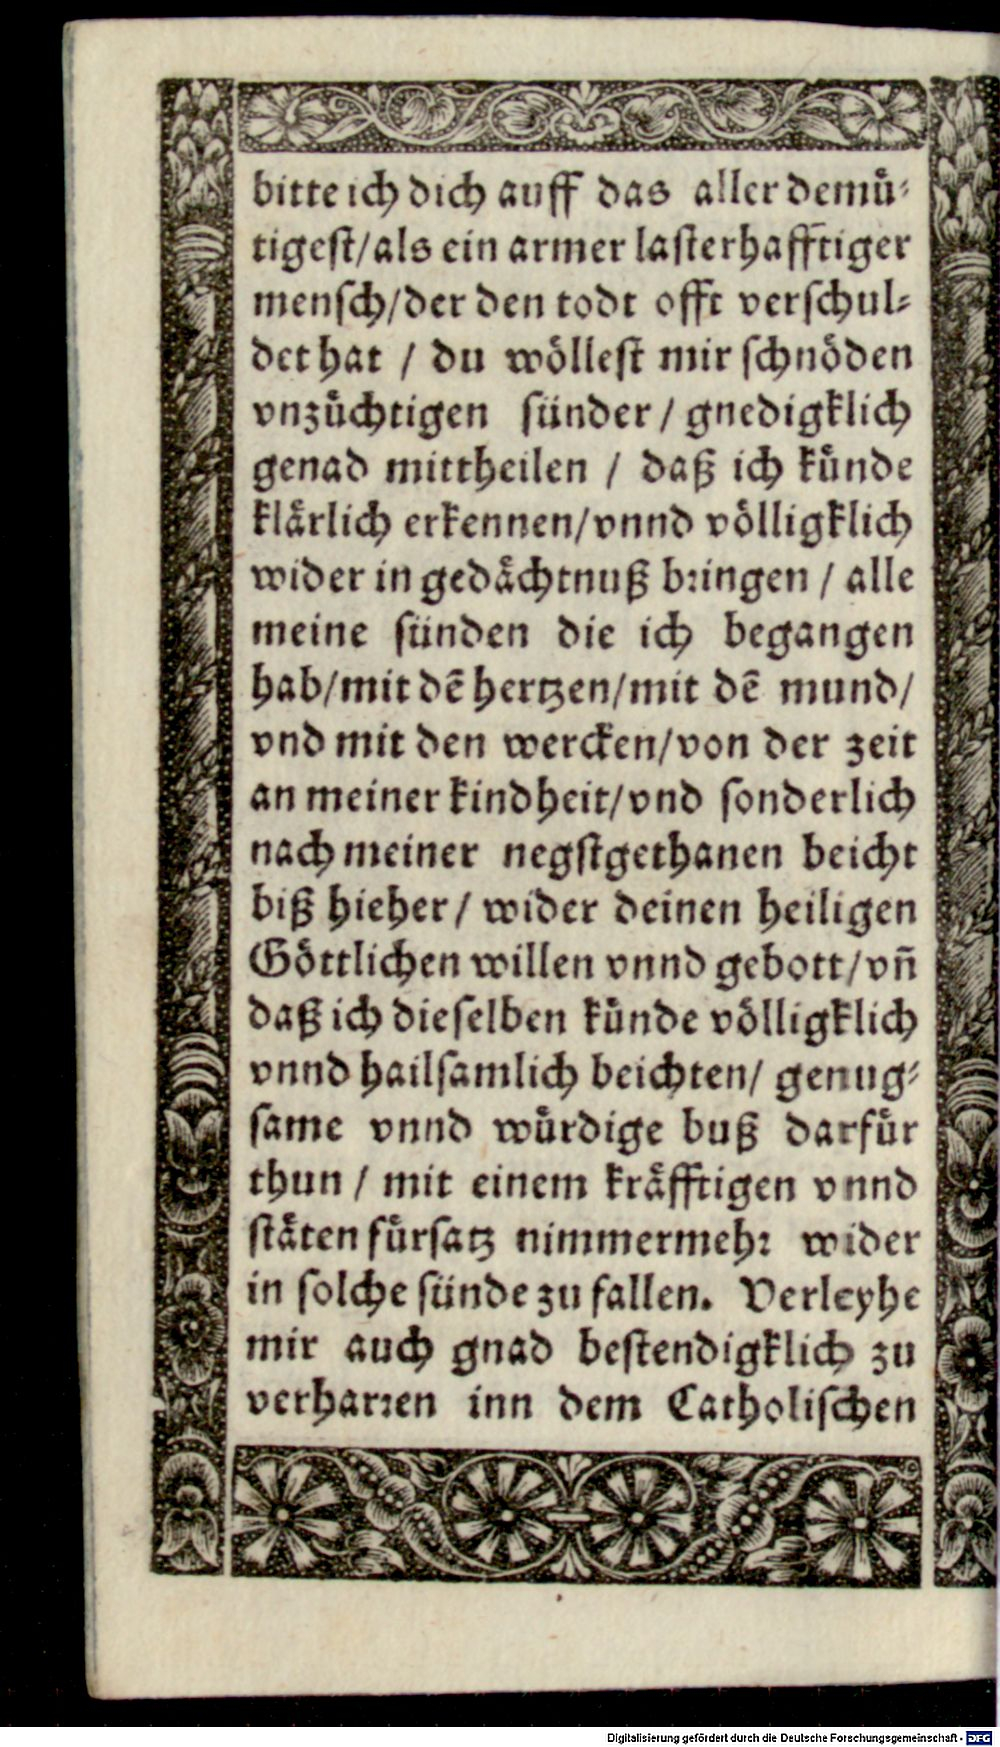 bitte ich dich auff das aller demuͤ⸗
tigeſt/als ein armer laſterhafftiger
menſch/der den todt offt verſchul⸗
det hat / du woͤlleſt mir ſchnoͤden
vnzuͤchtigen ſünder / gnedigklich
genad mittheilen / daß ich kuͤnde
klaͤrlich erkennen/vnnd voͤlligklich
wider in gedaͤchtnuß bꝛingen / alle
meine ſünden die ich begangen
hab/mit dē hertzen/mit dē mund/
vnd mit den wercken/von der zeit
an meiner kindheit/vnd ſonderlich
nach meiner negſtgethanen beicht
biß hieher / wider deinen heiligen
Goͤttlichen willen vnnd gebott/vn̄
daß ich dieſelben kuͤnde voͤlligklich
vnnd hailſamlich beichten/ genug⸗
ſame vnnd wuͤrdige buß darfuͤr
thun / mit einem kraͤfftigen vnnd
ſtaͤten fuͤrſatz nimmermehꝛ wider
in ſolche ſünde zu fallen. Verleyhe
mir auch gnad beſtendigklich zu
verharꝛen inn dem Catholiſchen
Digitalisierung gefördert durch die Deutsche Forschungsgemeinschaft - DFG